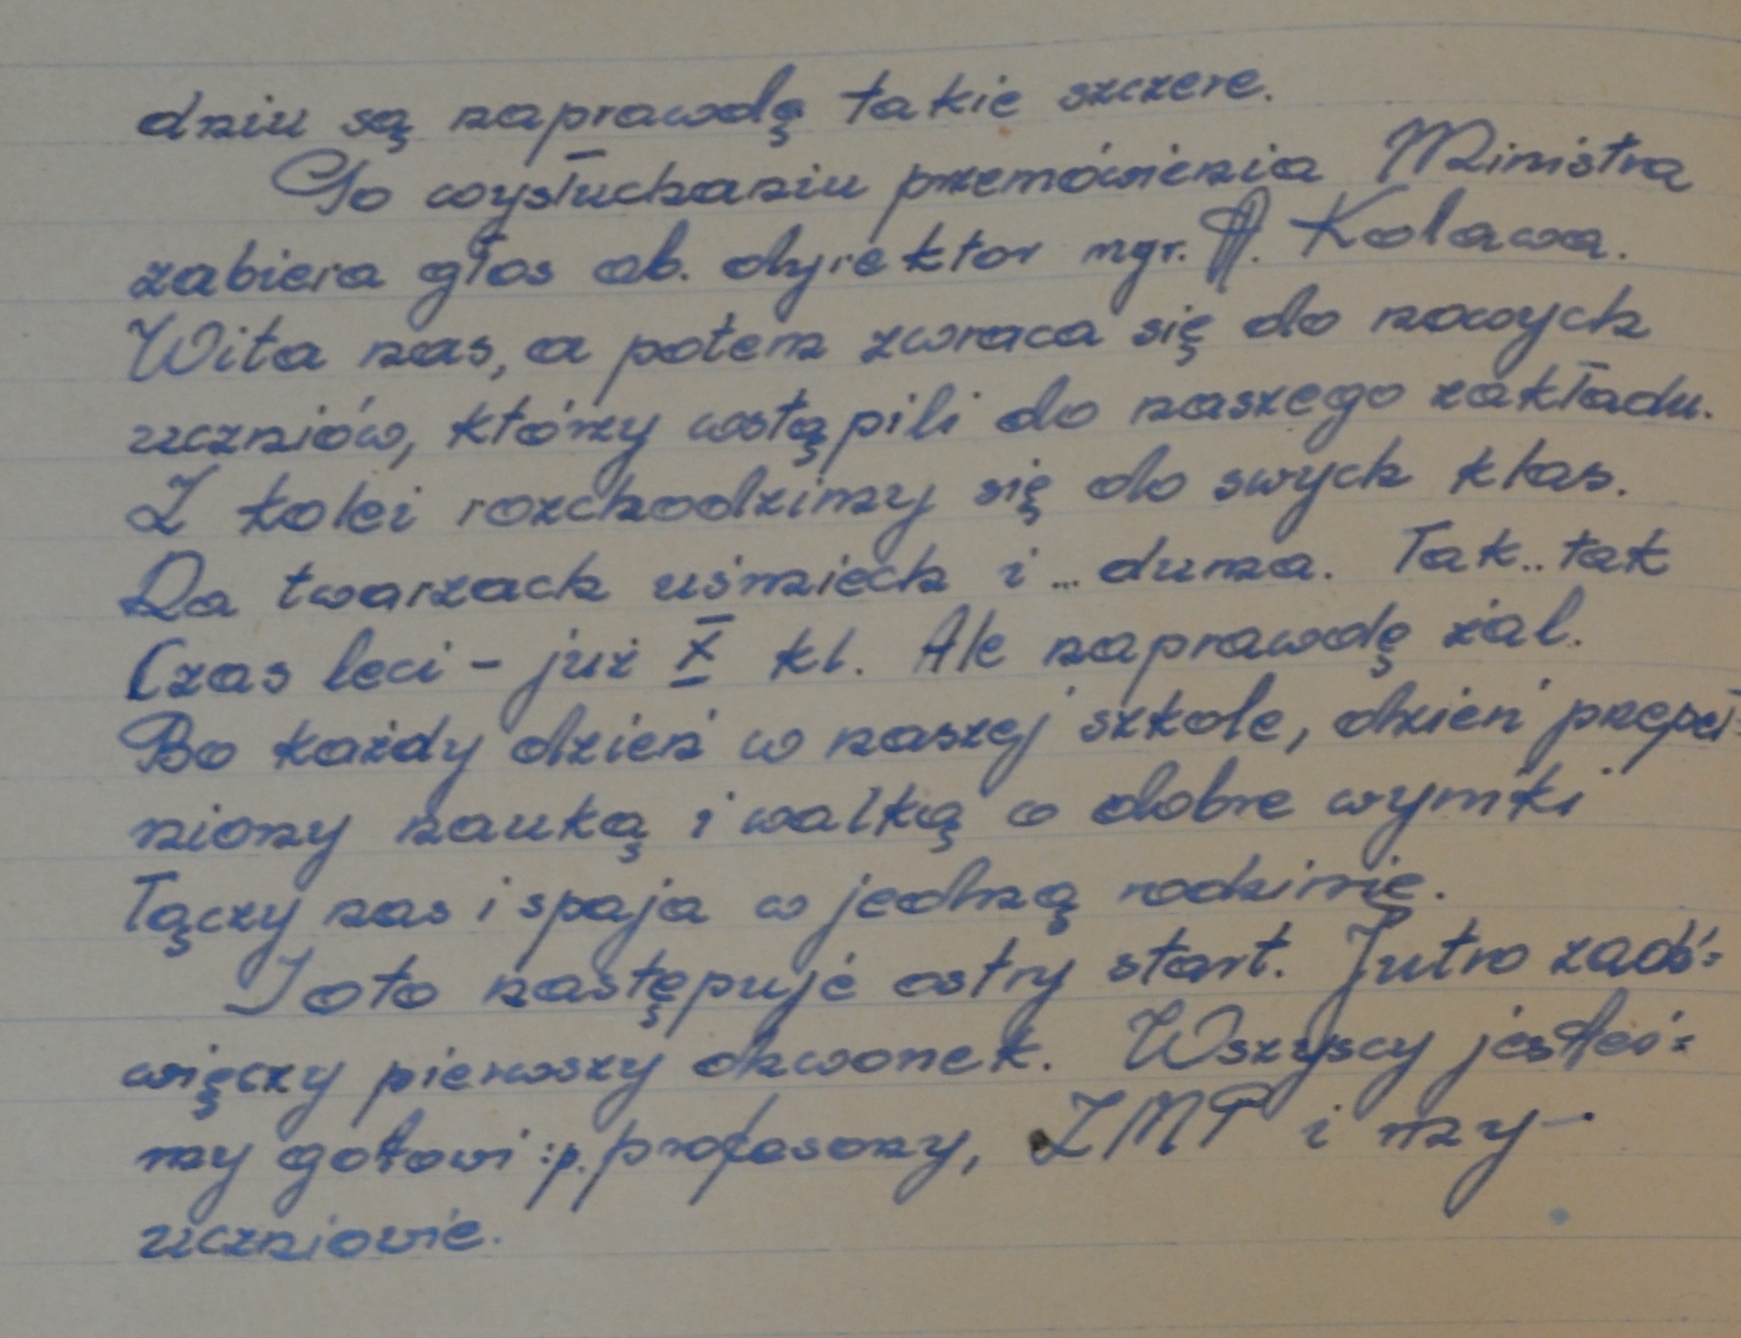 dniu są naprawdę takie szczere.
Po wysłuchaniu przemówienia Ministra
zabiera głos ob. dyrektor mgr. Kolawa.
Wita nas, a potem zwraca się do nowych
uczniów, którzy wstąpili do naszego zakładu.
Z kolei rozchodzimy się do swych klas.
Na twarzach uśmiech i ... duma. Tak.. tak
Czas leci - już X kl. Ale naprawdę żal.
Bo każdy dzień w naszej szkole, dzień przepeł=
niony nauką i walką o dobre wyniki
łączy nas i spaja w jedną rodzinię.
I oto następuje ostry start. Jutro zadź=
więczy pierwszy dzwonek. Wszyscy jesteś=
my gotowi :p. profesorzy, ZMP i my -
uczniowie.